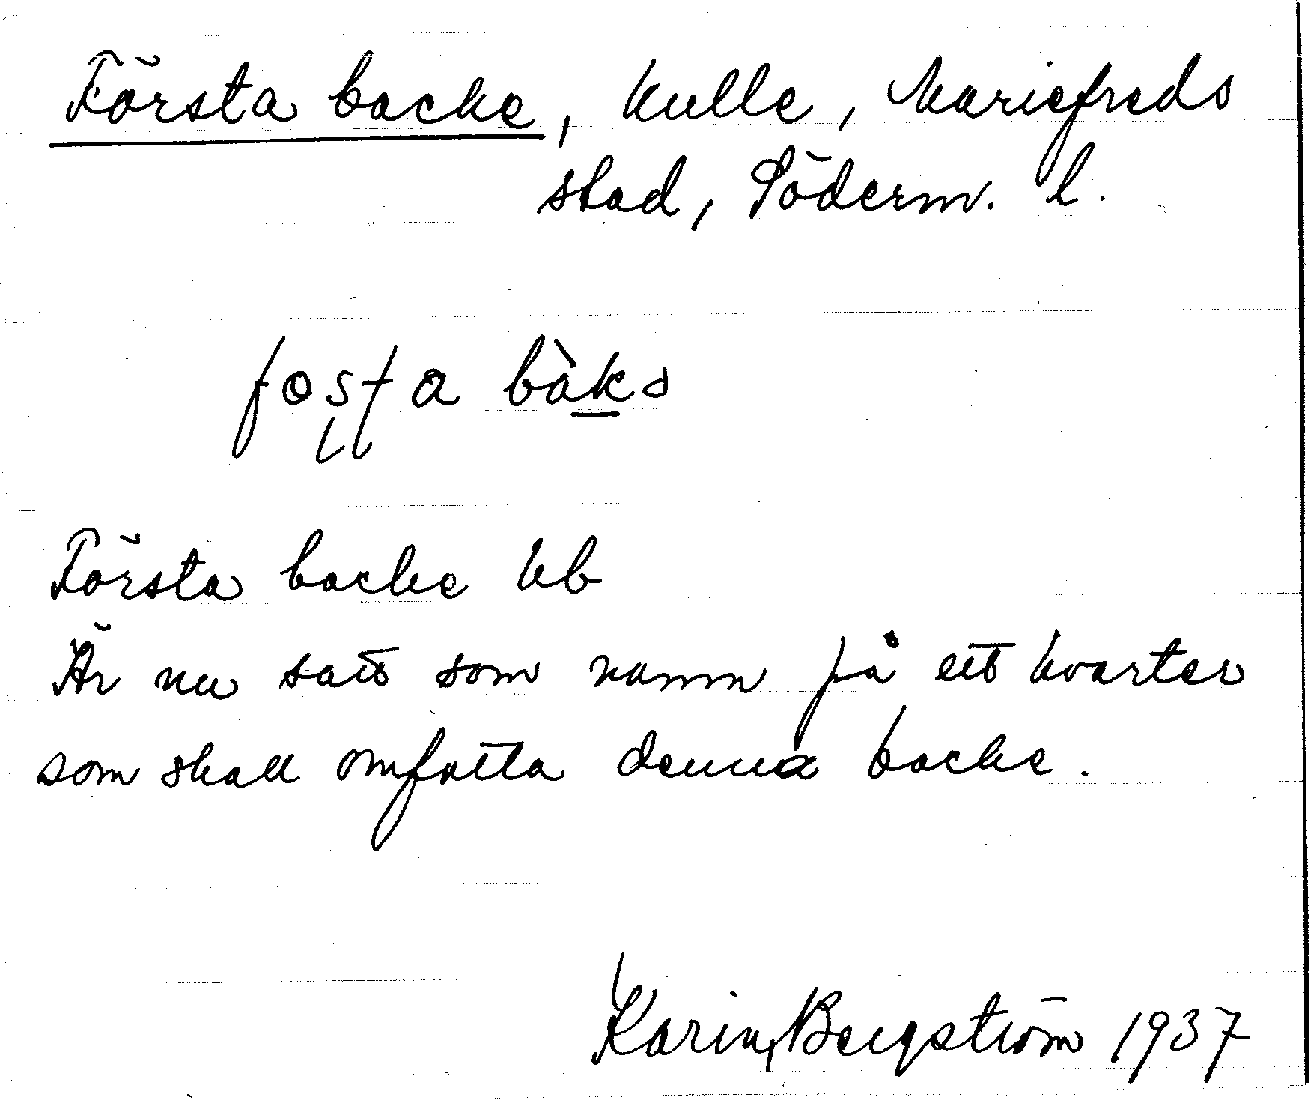 Första backe, kulle, Mariefreds
stad, Söderm. l.
Första backe kb
Är nu satt som namn på ett kvarter
som skall omfatta denna backe.
Karin Bergström 1937